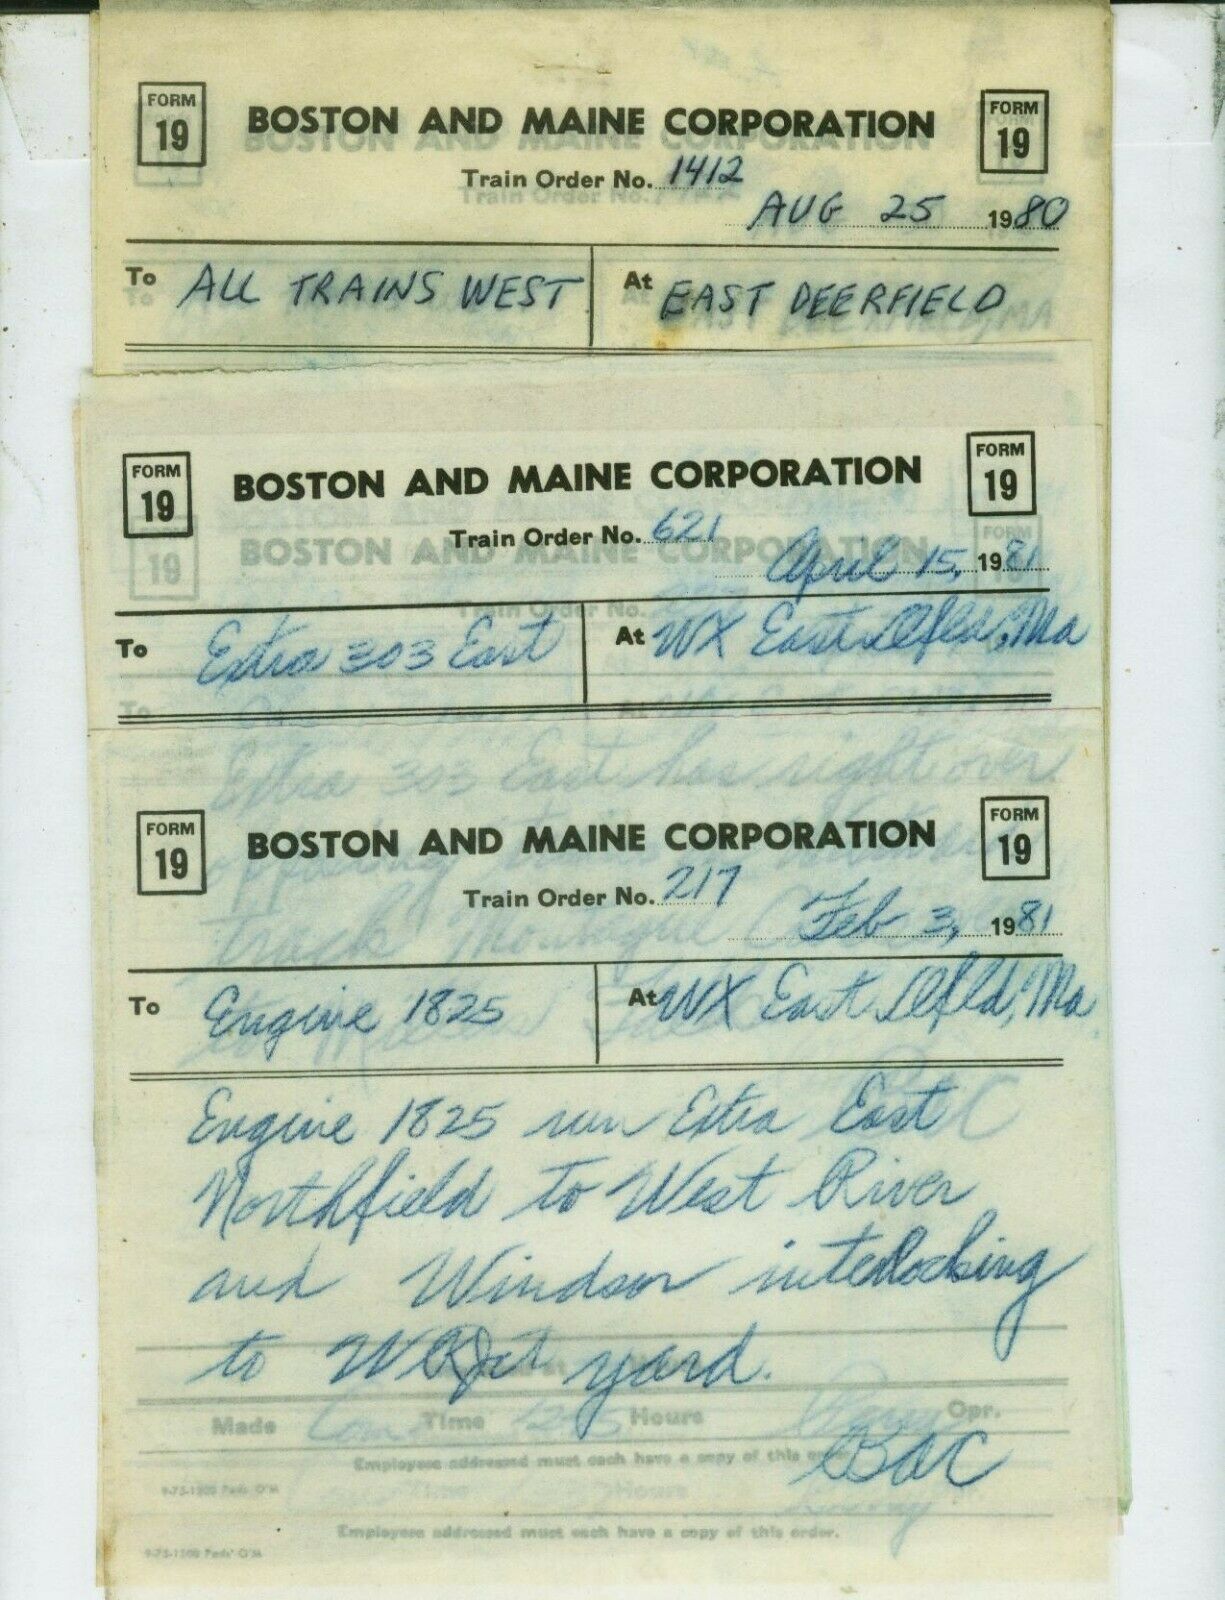 FORM 19 BOSTON AND MAINE CORPORATION FORM 19
Train Order No. 1412
AUG 25 1980
To ALL TRAINS WEST At EAST DEERFIELD
FORM 19 BOSTON AND MAINE CORPORATION FORM 19
Train Order No. 621
April 15, 1981
To Extra 303 East At WX East Dfld, Ma
Extra 303 East has right over
FORM 19 BOSTON AND MAINE CORPORATION FORM 19
Train Order No. 217
Feb 3, 1981
To Engine 1825 At WX East Dfld, Ma
Engine 1825 run Extra East
Northfield to West River
and Windsor interlocking
to yard.
Made Time Hours Opr.
BAC
Employees addressed must each have a copy of this order.
Employees addressed must each have a copy of this order.